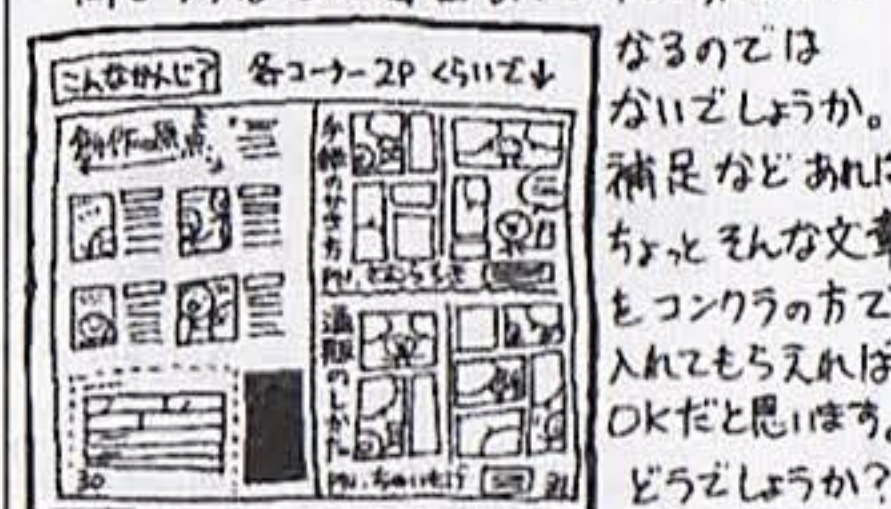 こんなかんじ?
各コーナー2Pくらいで↓
創作の原点
手紙のかき方
PN.とんちちき
通販のしかた
30
31
なるのでは
ないでしょうか。
補足などあれば
ちょっとそんな文章
をコンクラの方で
入れてもらえれば
OKだと思います。
どうでしょうか?